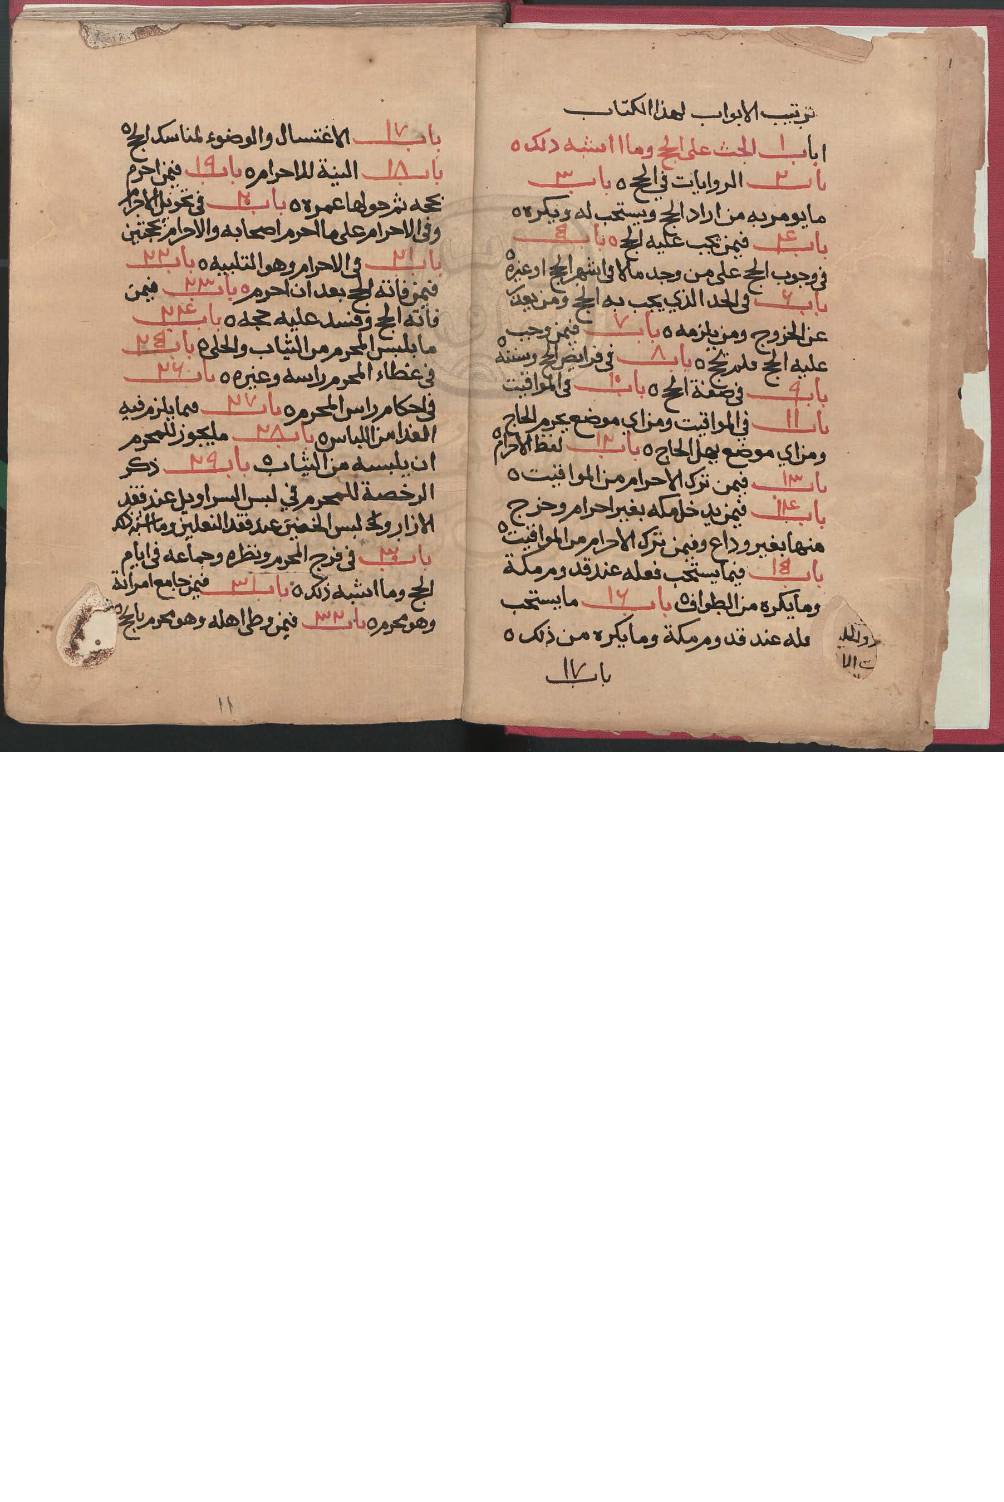 ترتيب الابواب لهذا الكتاب
اباب ١ الحث على الحج وما اشبه ذلك ه
باب ٢ الروايات في الحج ه باب ٣
ما يومر به من اراد الحج ويستحب له ويكره ه
باب ٤ فيمن يجب عليه الحج ه باب ٥
في وجوب الحج على من وجد مالا في اشهر الحج او غيره ه
باب ٦ في الحد الذي يجب به الحج ومن يعذر
عن الخروج ومن يلزمه ه باب ٧ فيمن وجب
عليه الحج فلم يحج ه باب ٨ في فرايض الحج وسننه ه
باب ٩ في صفة الحج ه باب ١٠ في المواقيت
باب ١١ في المواقيت ومن اي موضع يحرم الحاج
ومن اي موضع يهل الحاج ه باب ١٢ لفظ الاحرام ه
باب ١٣ فيمن ترك الاحرام من المواقيت ه
باب ١٤ فيمن يدخل مكه بغير احرام وخرج
منها بغير وداع وفيمن ترك الاحرام من المواقيت ه
باب ١٥ فيما يستحب فعله عند قدوم مكة
وما يكره من الطواف ه باب ١٦ ما يستحب
فعله عند قدوم مكة وما يكره من ذلك ه
باب ١٧
باب ١٧ الاغتسال والوضوء لمناسك الحج ه
باب ١٨ النية للاحرام ه باب ١٩ فيمن احرم
بحجه ثم حولها عمره ه باب ٢٠ في تحويل الاحرام
وفي الاحرام على ما احرم اصحابه والاحرام بحجتين
باب ٢١ في الاحرام وهو التلبيه ه باب ٢٢
فيمن فاته الحج بعد ان احرم ه باب ٢٣ فيمن
فاته الحج وفسد عليه حجه ه باب ٢٤
ما يلبس المحرم من الثياب والحلي ه باب ٢٥
في غطاء المحرم راسه وغيره ه باب ٢٦
في احكام راس المحرم ه باب ٢٧ فيما يلزم فيه
الفدا من اللباس ه باب ٢٨ ما يجوز للمحرم
ان يلبسه من الثياب ه باب ٢٩ ذكر
الرخصة للمحرم في لبس السراويل عند فقد
الازار وفي لبس الخفين عند فقد النعلين وما اشبه ذلك
باب ٣٠ في فرج المحرم ونظره وجماعه في ايام
الحج وما اشبه ذلك ه باب ٣١ فيمن جامع امراته
وهو محرم ه باب ٣٢ فيمن وطي اهله وهو محرم بالحج ه
١١